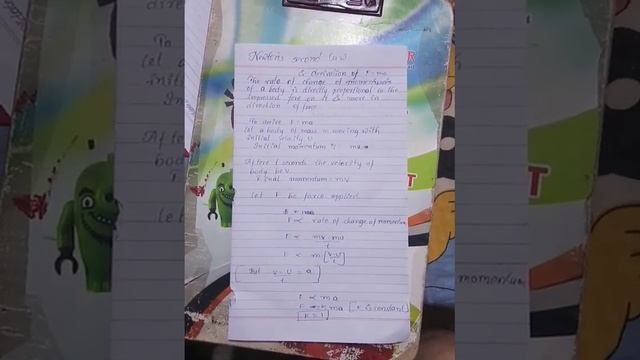 Newton's second law
& derivation of F = ma
The rate of change of momentum
of a body is directly proportional to the
impressed force on it & move in
direction of force
To derive F = ma
Let a body of mass m moving with
initial velocity U
Initial momentum = mu
After t seconds the velocity of
body be V
Final momentum = mV
Let F be force applied
F ∝ rate of change of momentum
F ∝ mv - mu
t
F ∝ m [V-U
t]
But V-U = a
t
F ∝ ma
F = K ma [K is constant]
K = 1
momentum